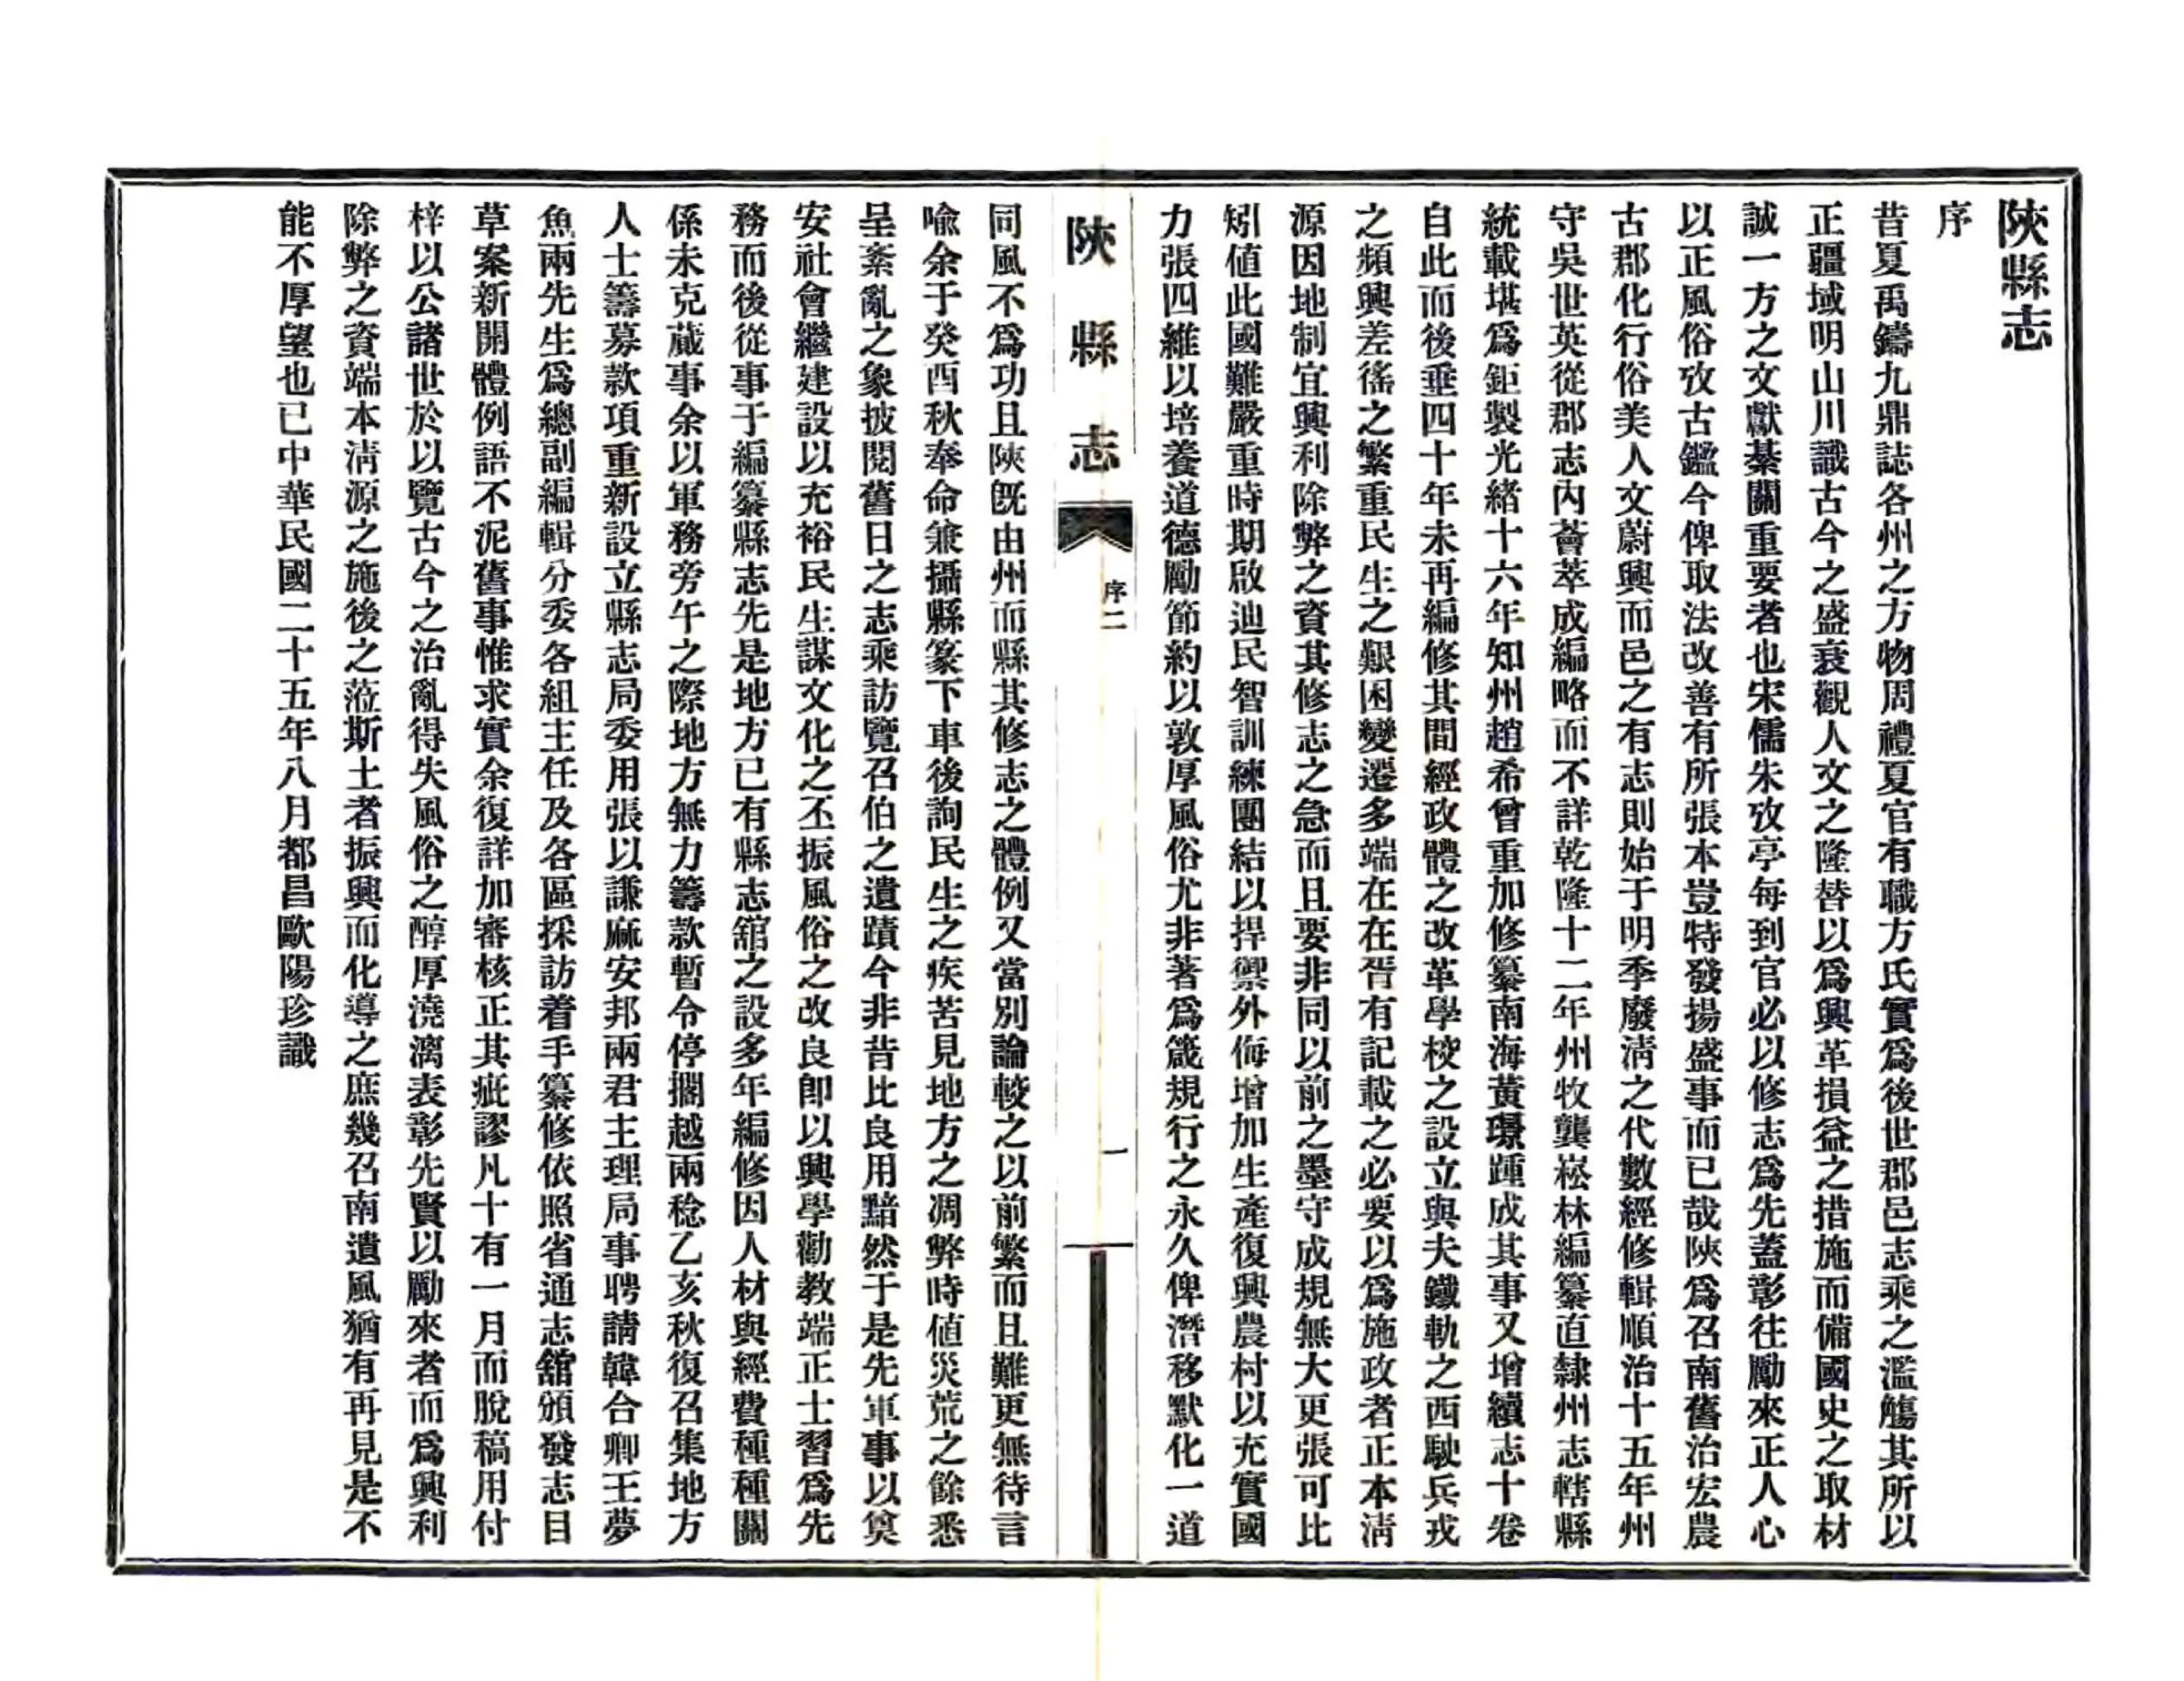 陝縣志
序
昔夏禹鑄九鼎誌各州之方物周禮夏官有職方氏實爲後世郡邑志乘之濫觴其所以
正疆域明山川識古今之盛衰觀人文之隆替以爲興革損益之措施而備國史之取材
誠一方之文獻綦關重要者也宋儒朱攷亭每到官必以修志爲先蓋彰往勵來正人心
以正風俗攷古鑑今俾取法改善有所張本豈特發揚盛事而已哉陝爲召南舊治宏農
古郡化行俗美人文蔚興而邑之有志則始于明季廢清之代數經修輯順治十五年州
守吳世英從郡志內薈萃成編略而不詳乾隆十二年州牧龔崧林編纂直隸州志轄縣
統載堪爲鉅製光緒十六年知州趙希曾重加修纂南海黃璟踵成其事又增續志十卷
自此而後垂四十年未再編修其間經政體之改革學校之設立與夫鐵軌之西駛兵戎
之頻興差徭之繁重民生之艱困變遷多端在在胥有記載之必要以爲施政者正本清
源因地制宜興利除弊之資其修志之急而且要非同以前之墨守成規無大更張可比
矧値此國難嚴重時期啟迪民智訓練團結以捍禦外侮增加生產復興農村以充實國
力張四維以培養道德勵節約以敦厚風俗尤非著爲箴規行之永久俾潛移默化一道
陝縣志
序二
一
同風不爲功且陝旣由州而縣其修志之體例又當別論較之以前繁而且難更無待言
喩余于癸酉秋奉命兼攝縣篆下車後詢民生之疾苦見地方之凋弊時値災荒之餘悉
呈紊亂之象披閱舊日之志乘訪覽召伯之遺蹟今非昔比良用黯然于是先軍事以奠
安社會繼建設以充裕民生謀文化之丕振風俗之改良卽以興學勸教端正士習爲先
務而後從事于編纂縣志先是地方已有縣志舘之設多年編修因人材與經費種種關
係未克蕆事余以軍務旁午之際地方無力籌款暫令停擱越兩稔乙亥秋復召集地方
人士籌募款項重新設立縣志局委用張以謙麻安邦兩君主理局事聘請韓合卿王夢
魚兩先生爲總副編輯分委各組主任及各區採訪着手纂修依照省通志舘頒發志目
草案新開體例語不泥舊事惟求實余復詳加審核正其疵謬凡十有一月而脫稿用付
梓以公諸世於以覽古今之治亂得失風俗之醇厚澆漓表彰先賢以勵來者而爲興利
除弊之資端本清源之施後之蒞斯土者振興而化導之庶幾召南遺風猶有再見是不
能不厚望也已中華民國二十五年八月都昌歐陽珍識